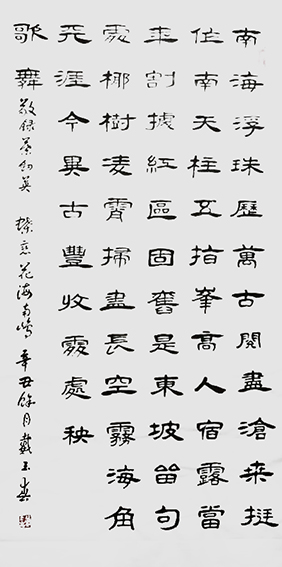 南海浮珠歷萬古閱盡滄桒挺
作南天柱五指峯高人宿露當
年割據紅區固舊是東坡留句
處椰樹凌霄掃盡長空霧海角
天涯今異古豐收處處秧
歌舞 敬録葉劍英 蝶恋花海南島 辛丑餘月戴玉